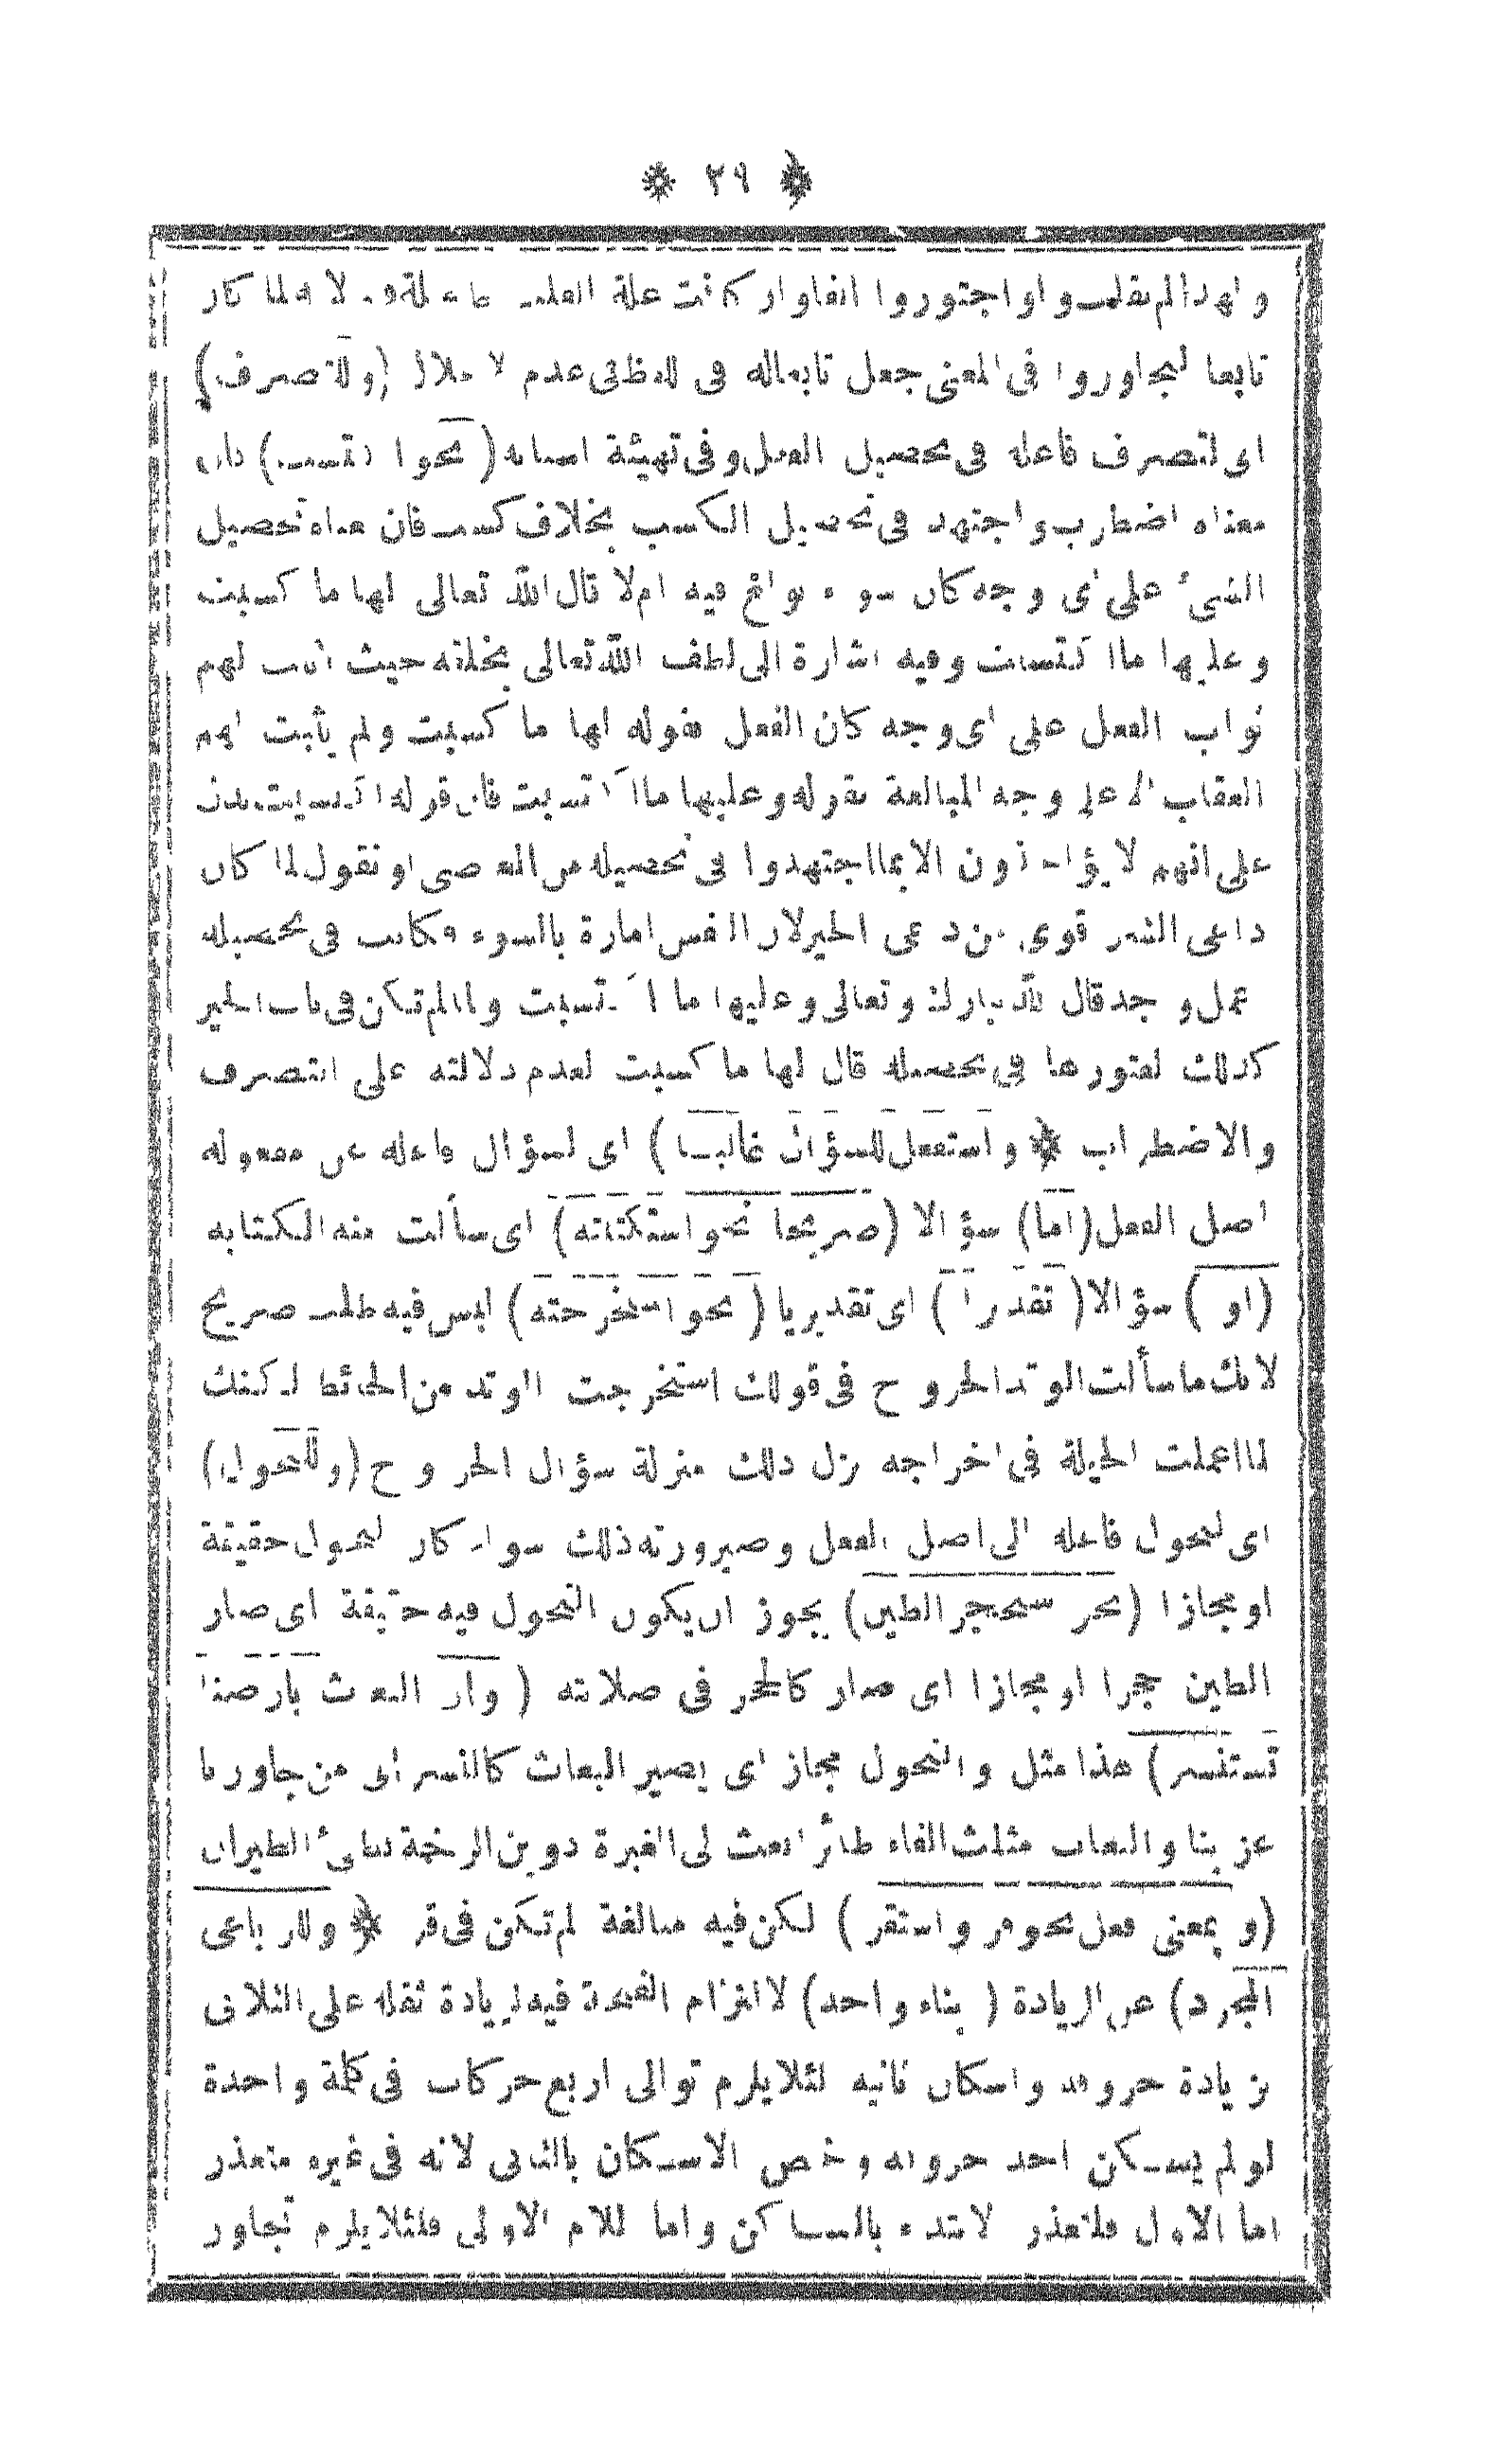 ﴿ ٢٩ ﴾
ولهذا لم تقلب واو اجتوروا الفا وان كانت علة القلب حاصلة لانه لما كان
تابعا لتجاوروا فى المعنى جعل تابعا له فى اللفظ فى عدم الاعلال (وللتصرف)
اى لتصرف فاعله فى تحصيل الفعل وفى تهيئة اسبابه (نحوا كتسب) فان
معناه اضطرب واجتهد فى تحصيل الكسب بخلاف كسب فان معناه تحصيل
الشئ على اى وجه كان سواء بولغ فيه ام لا قال الله تعالى لها ما كسبت
وعليها ما اكتسبت وفيه اشارة الى لطف الله تعالى بخلقه حيث اثبت لهم
ثواب الفعل على اى وجه كان الفعل بقوله لها ما كسبت ولم يثبت لهم
العقاب الا على وجه المبالغة بقوله وعليها ما اكتسبت فان قوله اكتسبت يدل
على انهم لا يؤاخذون الا بما اجتهدوا فى تحصيله من المعاصى او نقول لما كان
داعى الشر قوى من داعى الخير لان النفس امارة بالسوء فكانت فى تحصيله
اعمل وجد قال الله تبارك وتعالى وعليها ما اكتسبت ولما لم تكن فى باب الخير
كذلك لفتورها فى تحصيله قال لها ما كسبت لعدم دلالته على التصرف
والاضطراب ﴿ واستفعل للسؤال غالبا ) اى لسؤال فاعله عن مفعوله
اصل الفعل (اما) سؤالا (صريحا نحو استكتبته) اى سألت منه الكتابه
(او) سؤالا (تقديرا) اى تقديريا (نحو استخرجته) ليس فيه طلب صريح
لانك ما سألت الوتد الخروج فى قولك استخرجت الوتد من الحائط لكنك
لما اعملت الحيلة فى اخراجه نزل ذلك منزلة سؤال الخروج (وللتحول)
اى لتحول فاعله الى اصل الفعل وصيرورته ذلك سواء كان التحول حقيقة
او مجازا (نحو استحجر الطين) يجوز ان يكون التحول فيه حقيقة اى صار
الطين حجرا او مجازا اى صار كالحجر فى صلابته (وان البغاث بارضنا
تستنسر) هذا مثل والتحول مجاز اى يصير البغاث كالنسر اى من جاورنا
عز بنا والبغاث مثلث الفاء طائر ابغث الى الغبرة دوين الرخمة بطئ الطيران
(وبمعنى فعل نحو قر واستقر) لكن فيه مبالغة لم تكن فى قر ﴿ وللرباعى
المجرد) عن الزيادة (بناء واحد) لالتزام الفتحة فيه لزيادة ثقله على الثلاثى
بزيادة حروفه واسكان ثانيه لئلا يلزم توالى اربع حركات فى كلمة واحدة
لو لم يسكن احد حروفه وخص الاسكان بالثانى لانه فى غيره متعذر
اما الاول فلتعذر الابتداء بالساكن واما اللام الاولى فلئلا يلزم تجاور